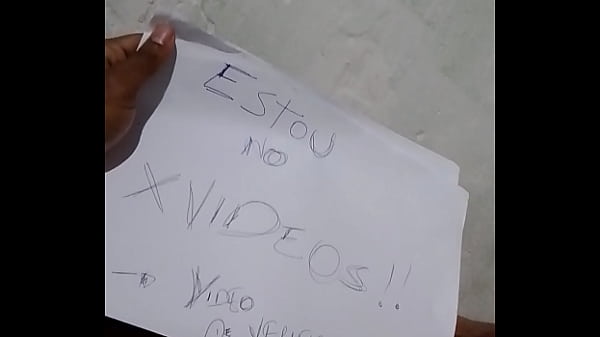 ESTOU
NO
XVIDEOS!!
→ VIDEO
DE